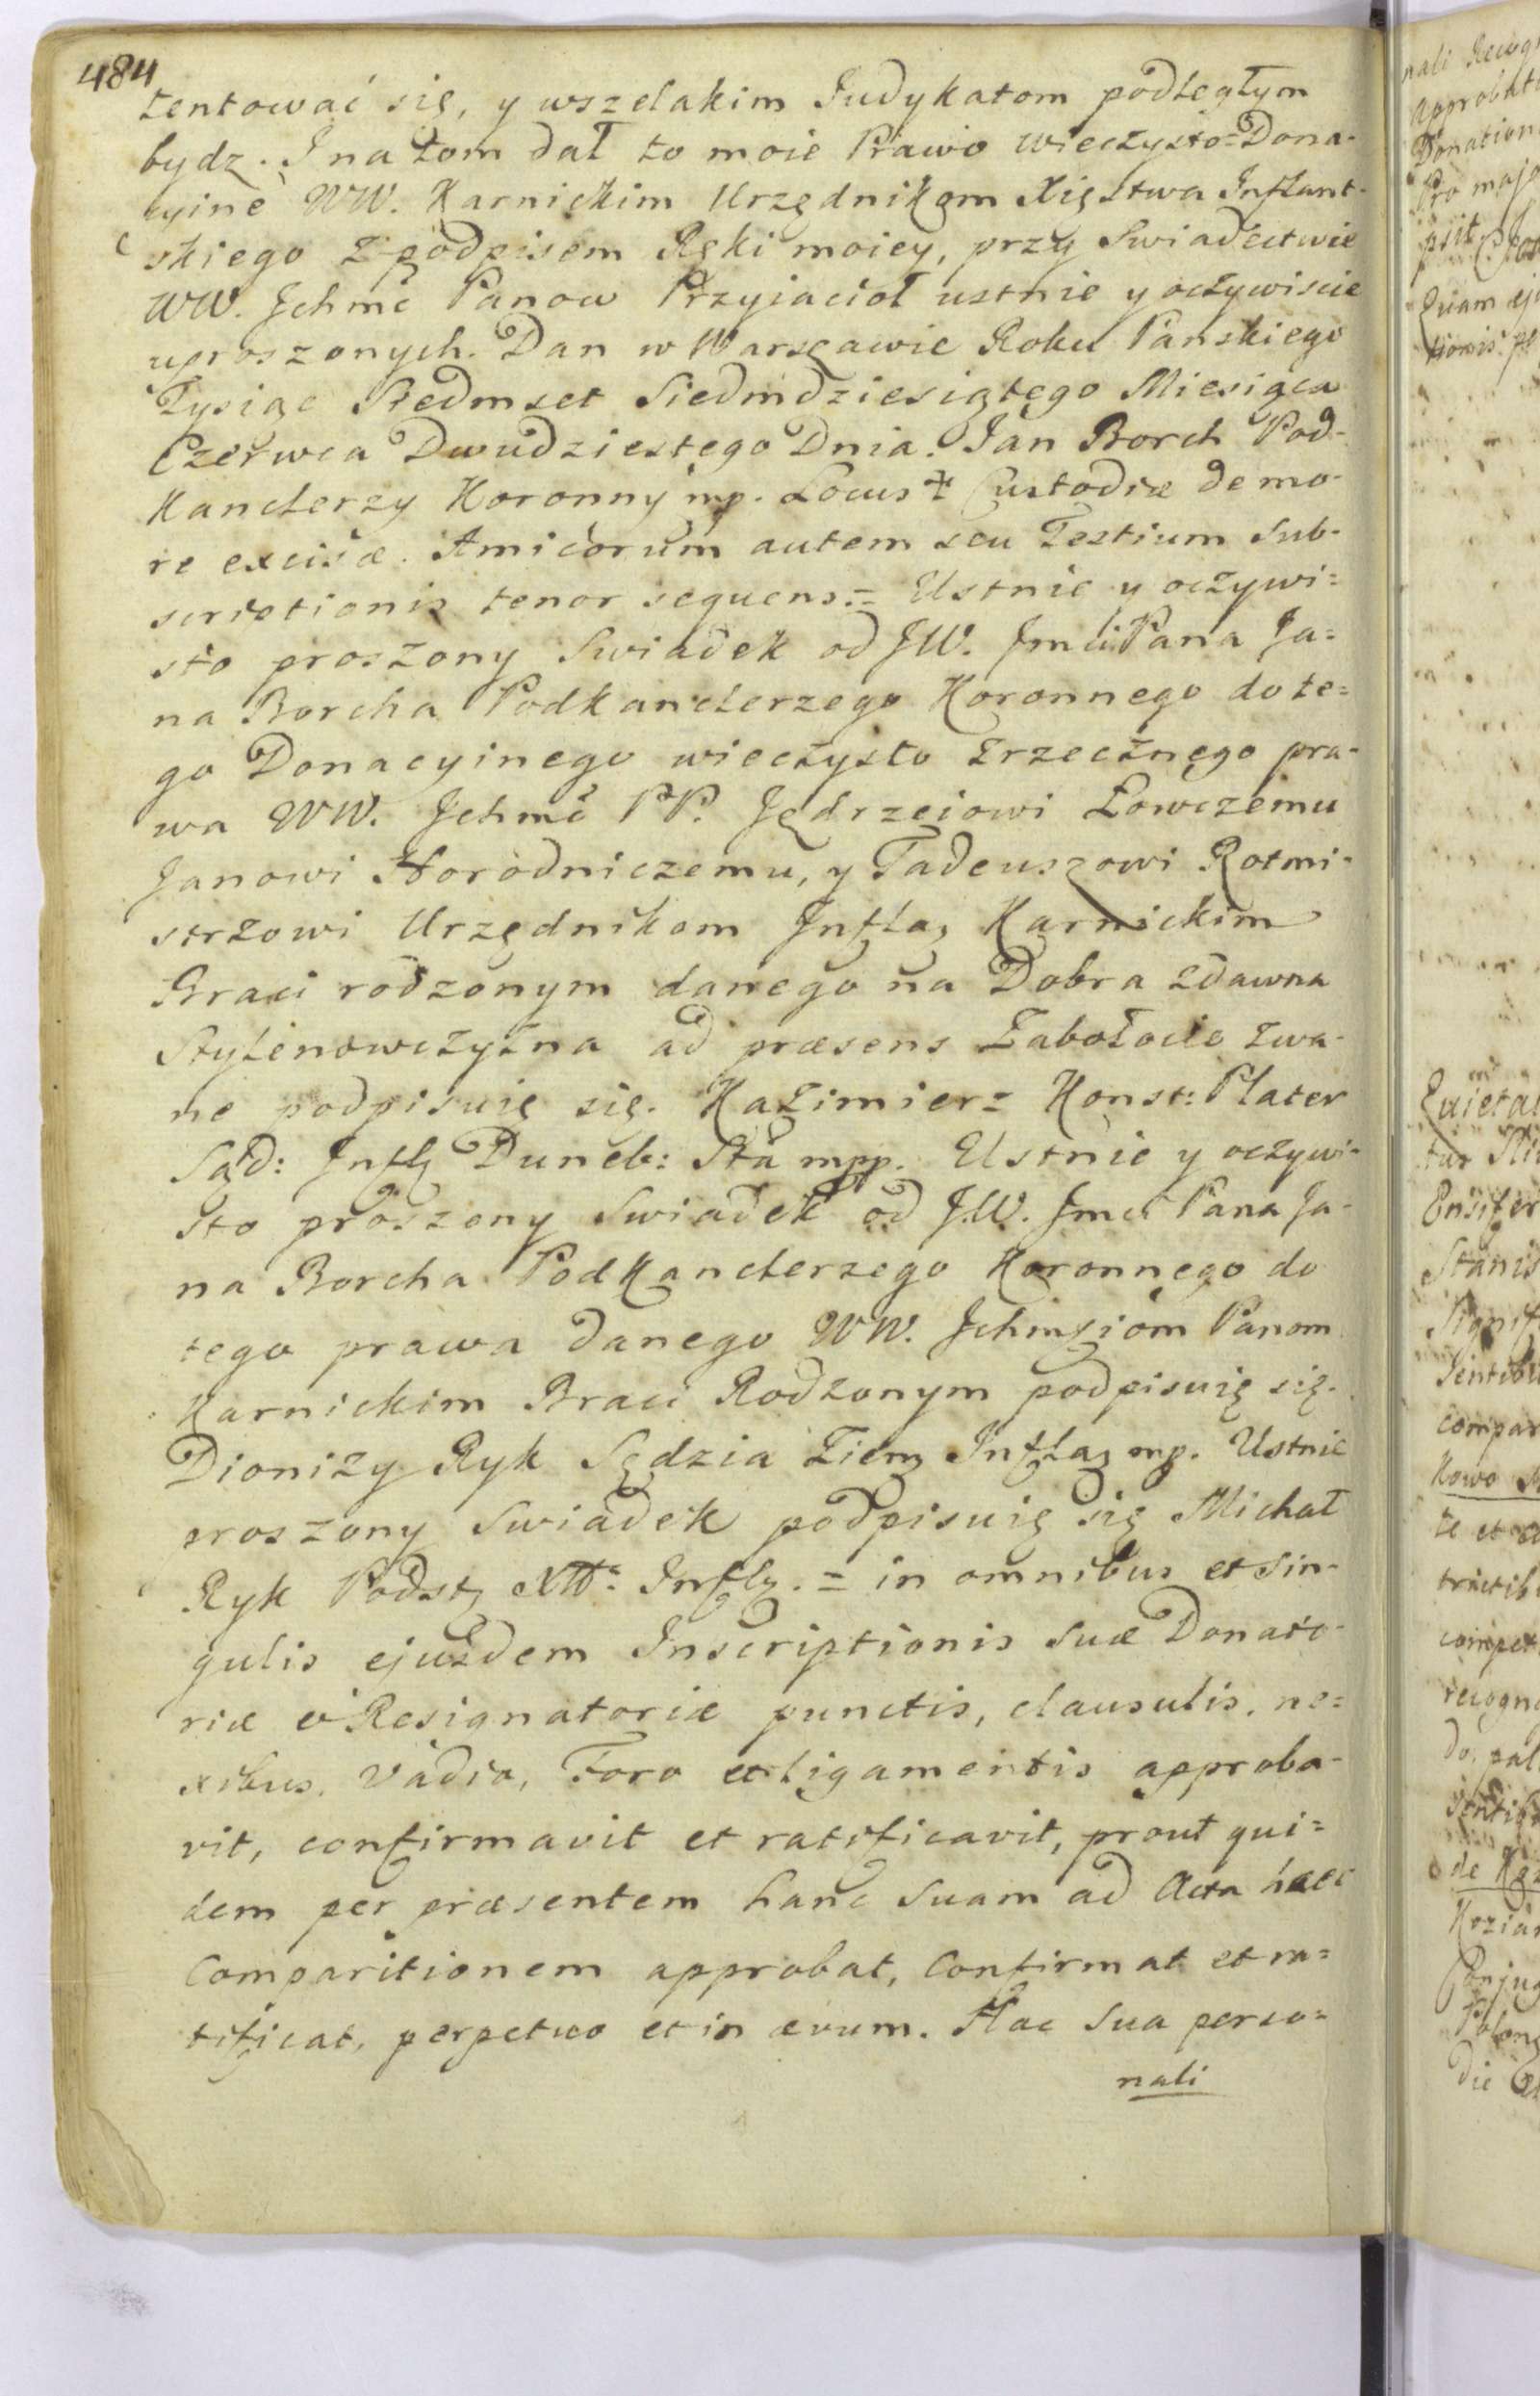 484
tentować się, y wszelakim Judykatom podległym
bydz. J na tom dał to moie Prawo wieczysto=Dona-
cyine WW. Karnickim Urzędnikom Xięstwa Inflant-
skiego z podpisem Ręki moiey, przy Swiadectwie
WW. Jchmć Panow Przyiacioł ustnie y oczywiscie
uproszonych. Dan w Warszawie Roku Pańskiego
Tysiąc Siedmset Siedmdziesiątego Miesiąca
Czerwca Dwudziestego Dnia. Jan Borch Pod-
Kanclerzy Koronny mp. Locus Custodiæ de mo-
re excisæ. Amicorum autem seu Testium Sub-
scriptionis tenor sequens.= Ustnie y oczywi=
sto proszony Swiadek od JW. Jmci Pana Ja=
na Borcha Podkanclerzego Koronnego do te=
go Donacyinego wieczysto zrzecznego pra-
wa WW. Jchmć PP. Jędrzeiowi Łowczemu
Janowi Horodniczemu, y Tadeuszowi Rotmi-
strzowi Urzędnikom Infla, Karnickim
Braci rodzonym danego na Dobra zdawna
Stylenowczyzna ad præsens Zabołocie zwa-
ne podpisuię się. Kazimierz Konst: Plater
Sąd: Infl, Duneb: Sta mpp. Ustnie y oczywi-
sto proszony Swiadek od J.W. Jmci Pana Ja-
na Borcha PodKanclerzego Koronnego do
tego prawa danego WW. Jchmściom Panom
Karnickim Braci Rodzonym podpisuię się.
Dionizy Ryk Sędzia Ziem, Infla, mp. Ustnie
proszony Swiadek podpisuię się Michał
Ryk Podst, XWa: Infl,. = in omnibus et sin-
gulis ejusdem Inscriptionis suæ Donato-
riæ et Resignatoriæ punctis, clausulis, ne=
xibus, Vadio, Foro et ligamentis approba-
vit, confirmavit et ratificavit, prout qui=
dem per præsentem hanc suam ad Acta hæcce
Comparitionem approbat, Confirmat et ra=
tificat, perpetuo et in ævum. Hac Sua perso=
nali